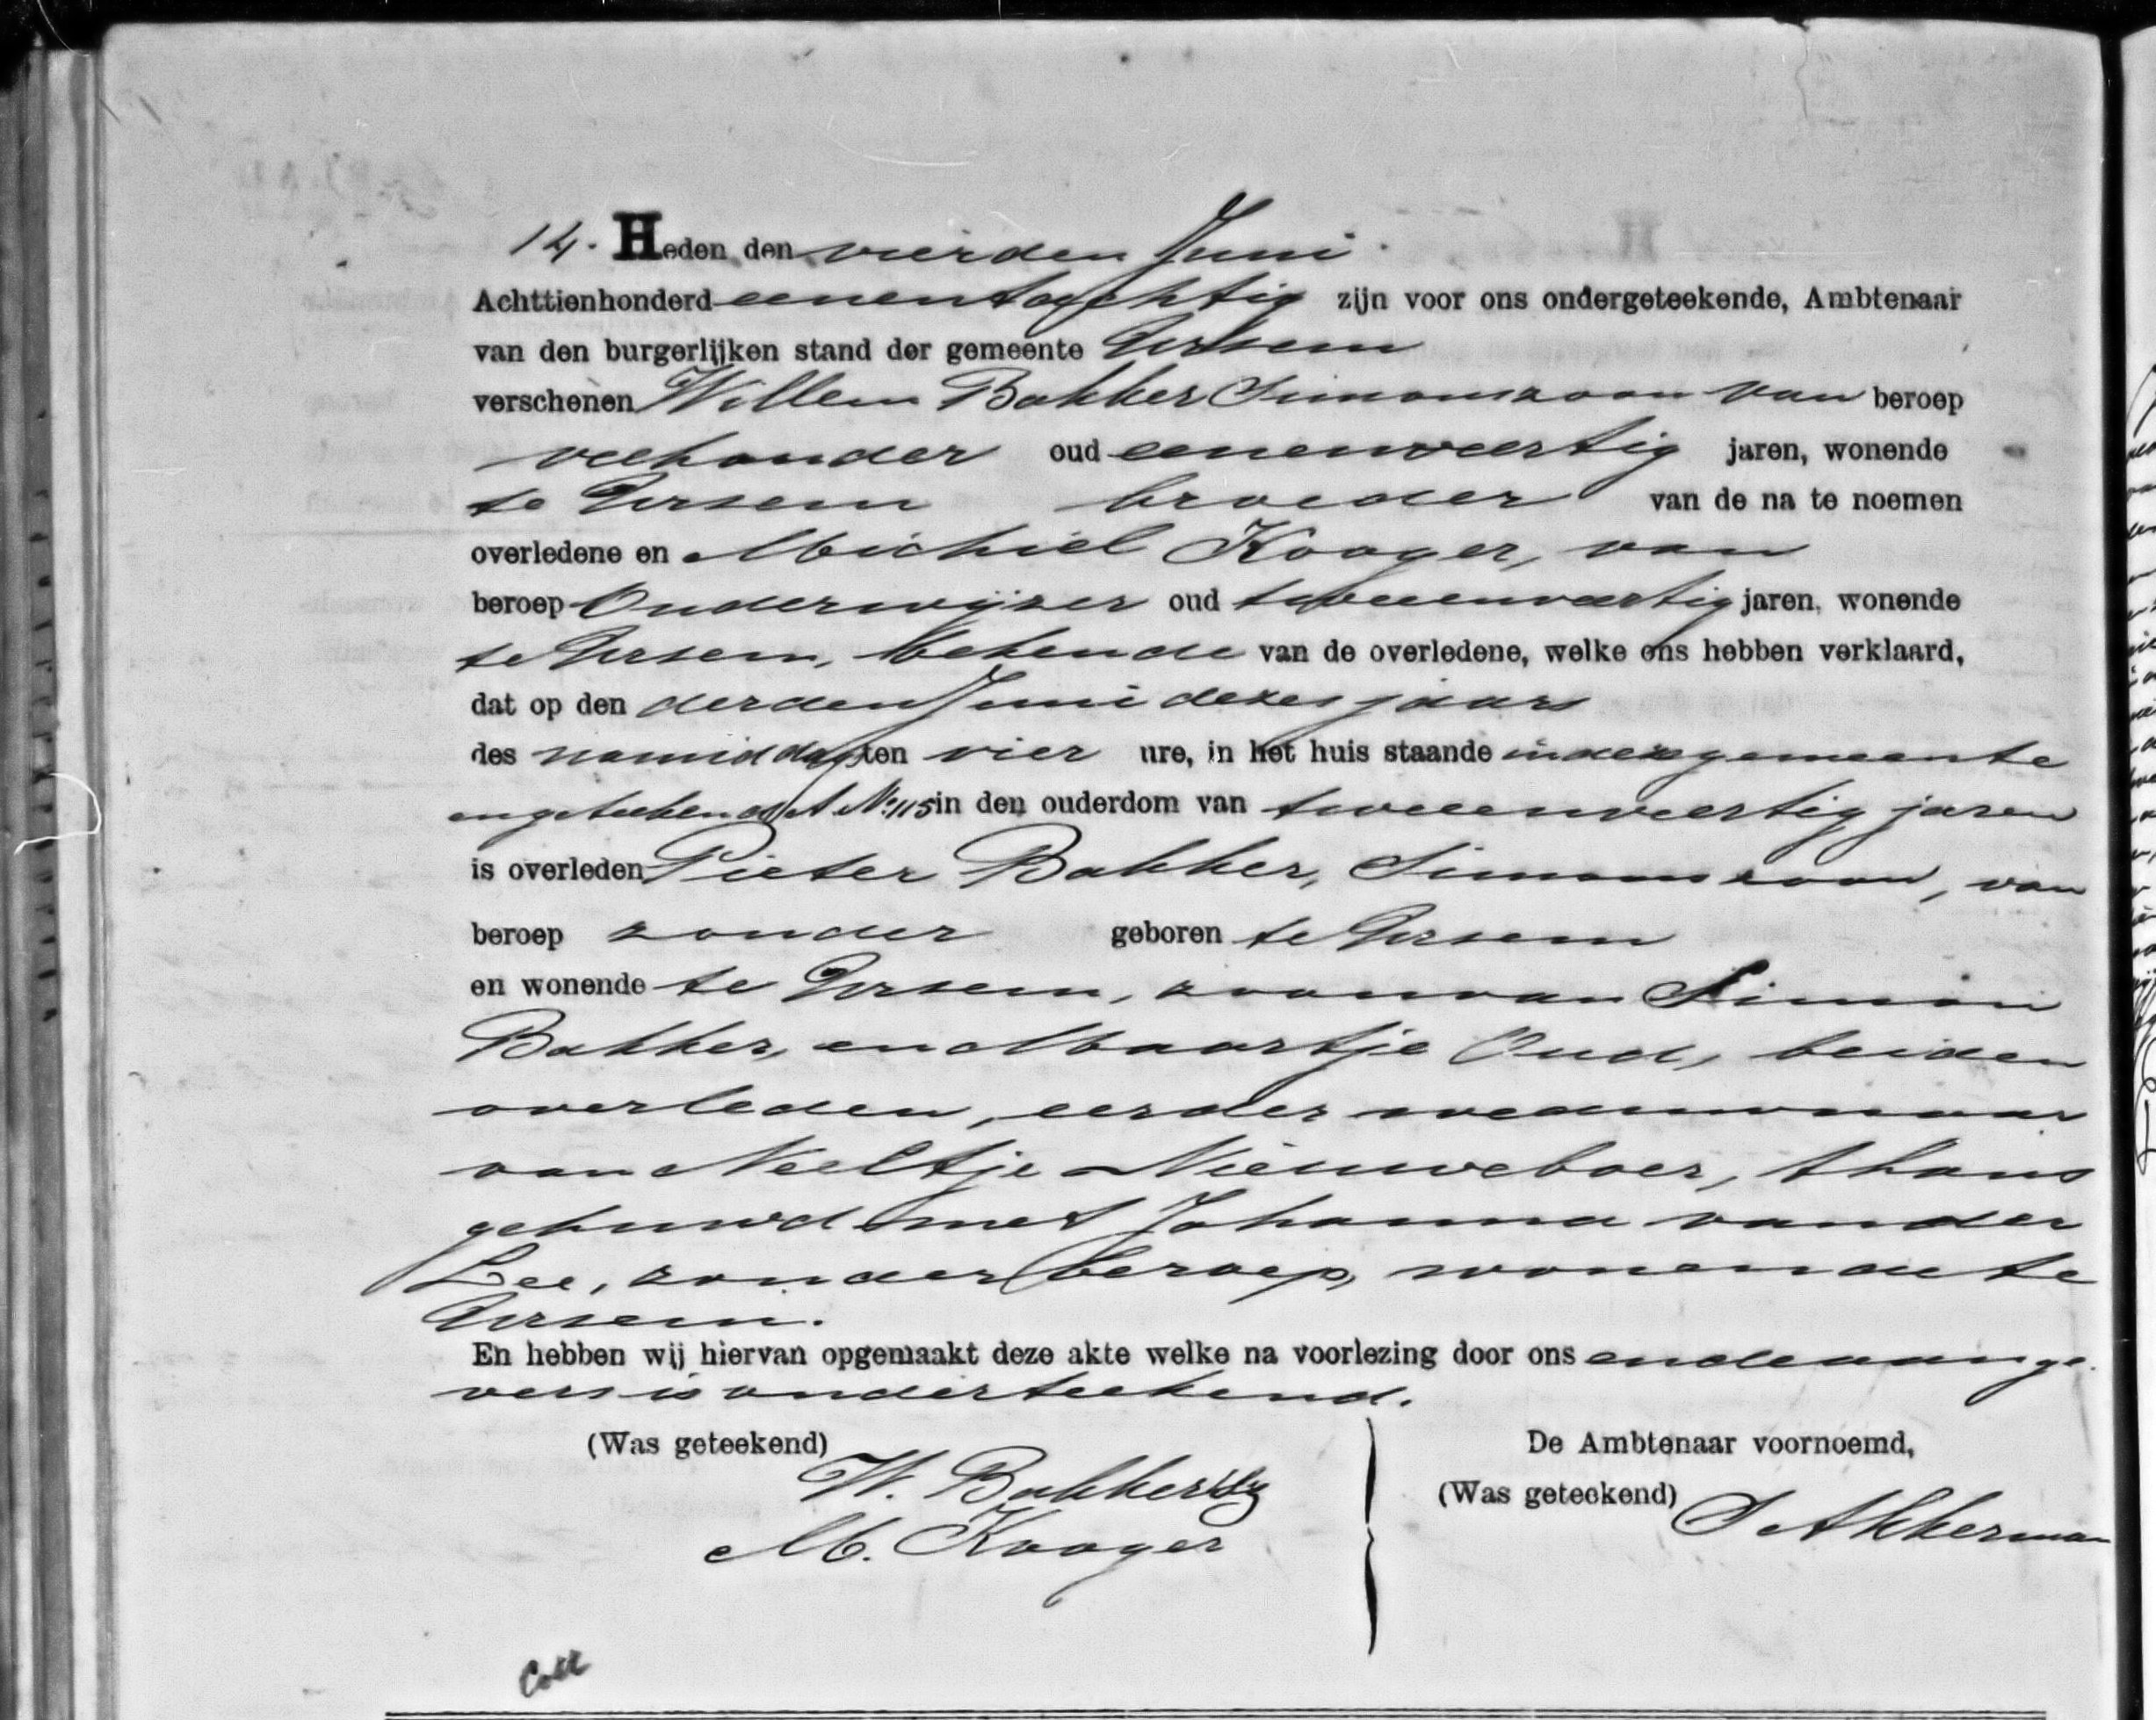 14. Heden den vierden Juni
Achttienhonderd eenentachtig zijn voor ons ondergeteekende, Ambtenaar
van den burgerlijken stand der gemeente Ursem
verschenen Willem Bakker Simonszoon van beroep
veehouder oud eenenveertig jaren, wonende
te Ursem broeder van de na te noemen
overledene en Michiel Kooger, van
beroep Onderwijzer oud tweeenveertig jaren, wonende
te Ursem, bekende van de overledene, welke ons hebben verklaard,
dat op den derden Juni dezes jaars
des namiddags ten vier ure, in het huis staande in deze gemeente
en geteekend A No. 115 in den ouderdom van tweeenveertig jaren
is overleden Pieter Bakker, Simonszoon, van
beroep zonder geboren te Ursem
en wonende te Ursem, zoon van Simon
Bakker, en Maartje Oud, beiden
overleden, eerder weduwnaar
van Neeltje Nieuweboer, thans
gehuwd met Johanna van der
Lee, zonder beroep, wonende te
Ursem.
En hebben wij hiervan opgemaakt deze akte welke na voorlezing door ons en de aange
vers is onderteekend.
(Was geteekend) De Ambtenaar voornoemd,
W. Bakker Sz (Was geteekend)
M. Kooger S Akkerman
Coll